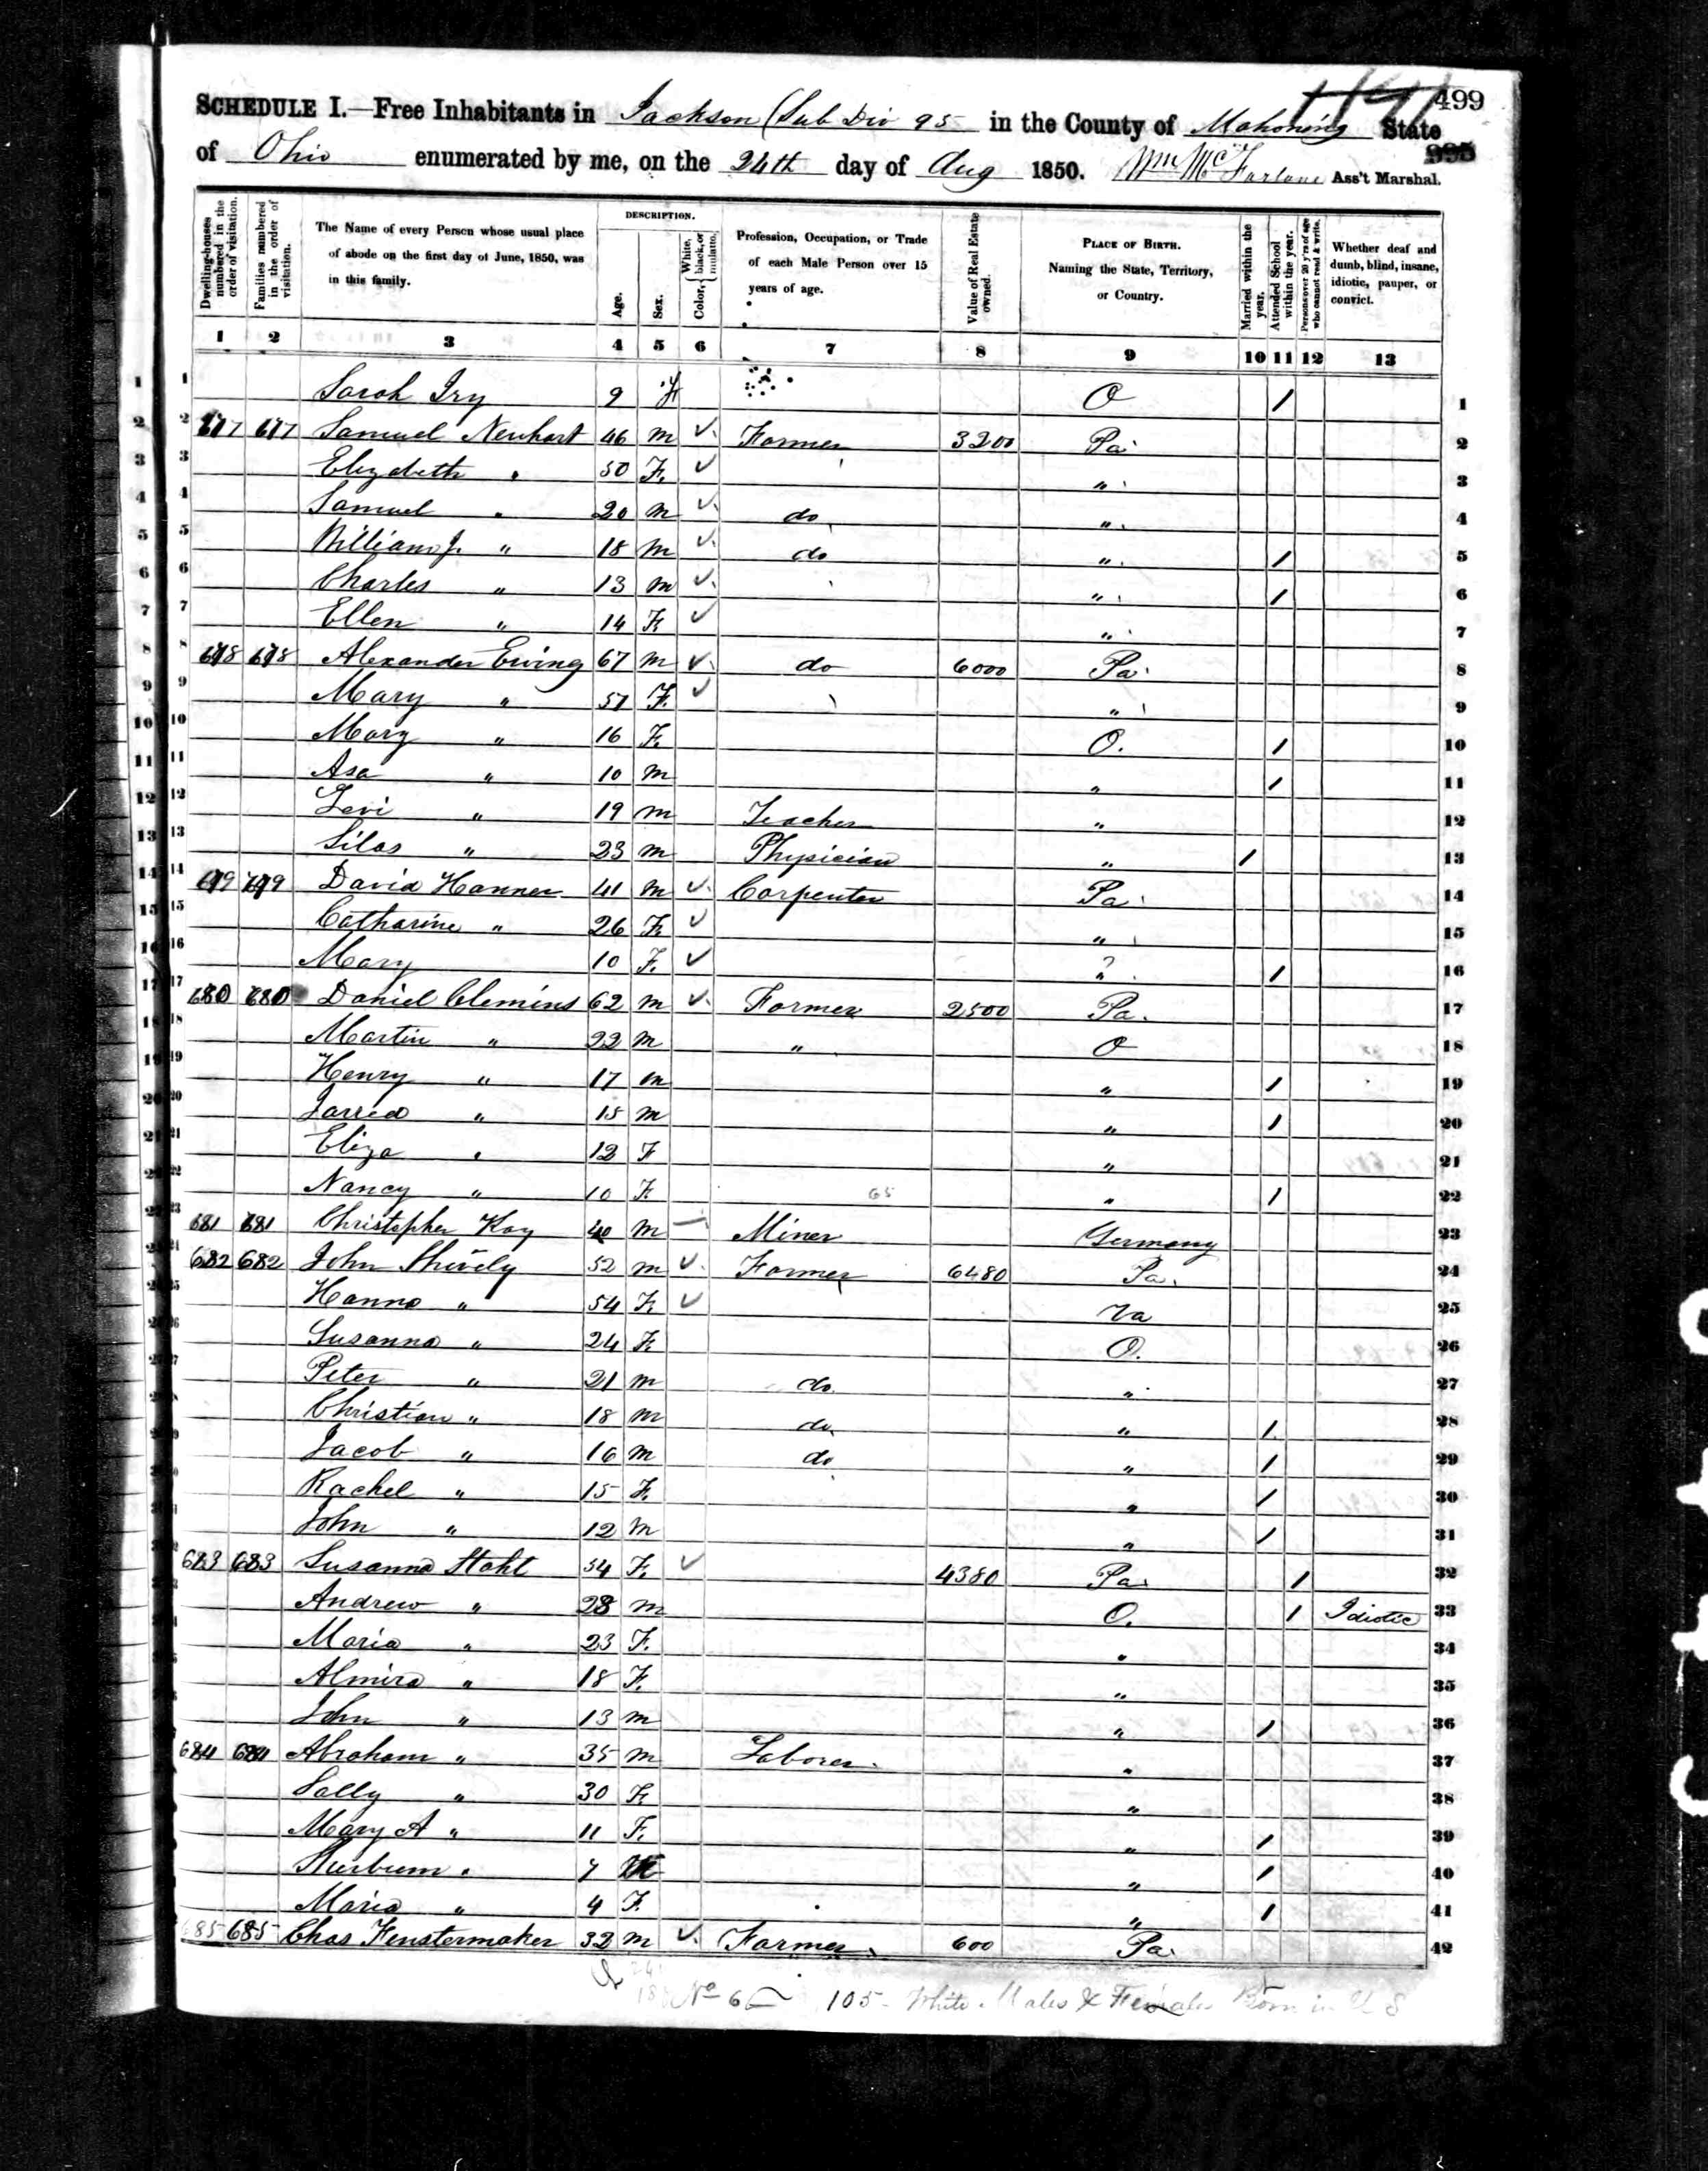 499
SCHEDULE I.—Free Inhabitants in Jackson (Sub Div 95 in the County of Mahoning State
of Ohio enumerated by me, on the 24th day of Aug 1850. Wm McFarlane Ass't Marshal.
995
Dwelling-houses numbered in the order of visitation.
Families numbered in the order of visitation.
The Name of every Person whose usual place of abode on the first day of June, 1850, was in this family.
DESCRIPTION.
Age.
Sex.
Color, { White, black, or mulatto.
Profession, Occupation, or Trade of each Male Person over 15 years of age.
Value of Real Estate owned.
PLACE OF BIRTH. Naming the State, Territory, or Country.
Married within the year.
Attended School within the year.
Persons over 20 y'rs of age who cannot read & write.
Whether deaf and dumb, blind, insane, idiotic, pauper, or convict.
1 2 3 4 5 6 7 8 9 10 11 12 13
1 Sarah Iry 9 F O / 1
2 677 677 Samuel Neuhart 46 m ✓ Farmer 3200 Pa 2
3 Elizabeth " 50 F. ✓ " 3
4 Samuel " 20 m ✓ do " 4
5 William J. " 18 m ✓ do " / 5
6 Charles " 13 m ✓ " / 6
7 Ellen " 14 F ✓ " 7
8 678 678 Alexander Ewing 67 m ✓ do 6000 Pa 8
9 Mary " 57 F. ✓ " 9
10 Mary " 16 F. O. / 10
11 Asa " 10 m " / 11
12 Levi " 19 m Teacher " 12
13 Silas " 23 m Physician " / 13
14 679 679 David Hanner 41 m ✓ Carpenter Pa 14
15 Catharine " 26 F ✓ " 15
16 Mary 10 F. ✓ ? " / 16
17 680 680 Daniel Clemins 62 m ✓ Farmer 2500 Pa. 17
18 Martin " 22 m " O 18
19 Henry " 17 m " / 19
20 Jarred " 15 m " / 20
21 Eliza " 12 F " 21
22 Nancy " 10 F 65 " / 22
23 681 681 Christopher Kay 40 m Miner Germany 23
24 682 682 John Shively 52 m ✓ Farmer 6480 Pa. 24
25 Hanna " 54 F ✓ Va 25
26 Susanna " 24 F O. 26
27 Peter " 21 m do " 27
28 Christian " 18 m do " / 28
29 Jacob " 16 m do " / 29
30 Rachel " 15 F. " / 30
31 John " 12 m " / 31
32 683 683 Susanna Stahl 54 F. ✓ 4380 Pa / 32
33 Andrew " 28 m O. / Idiotic 33
34 Maria " 23 F. " 34
35 Almira " 18 F. " 35
36 John " 13 m " / 36
37 684 684 Abraham " 35 m Laborer " 37
38 Sally " 30 F " 38
39 Mary A " 11 F. " / 39
40 " 7 " / 40
41 Maria " 4 F. " / 41
42 685 685 Chas Fenstermaker 32 m ✓ Farmer 600 Pa 42
No 6 105 White Males & Females Born in U S